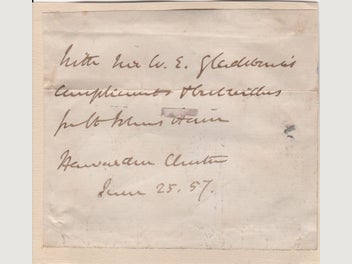 With Mr W. E. Gladstone's
compliments & best wishes
for
Hawarden Chester
June 25. 57.